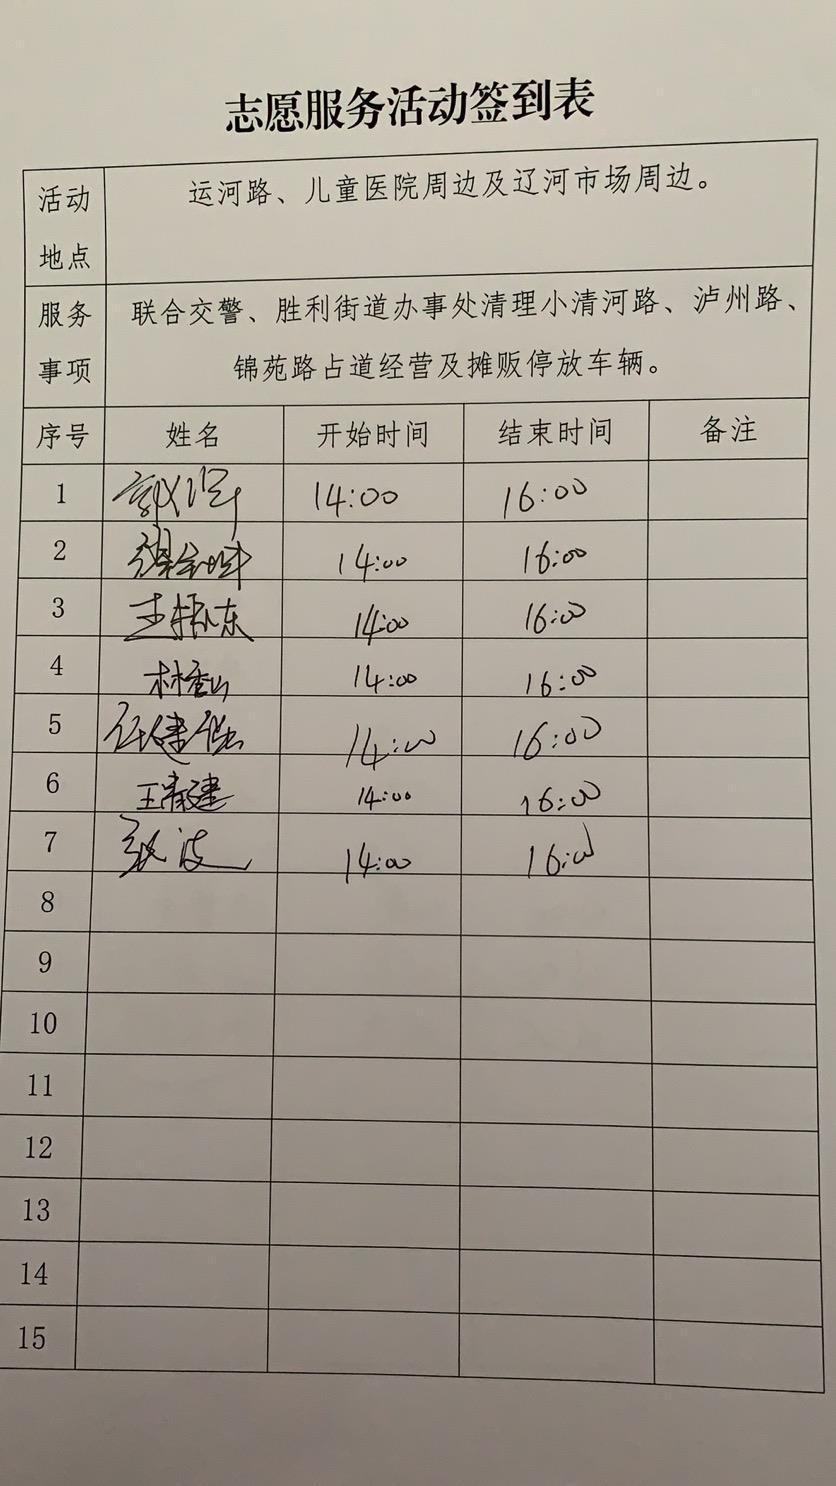 志愿服务活动签到表
活动地点 运河路、儿童医院周边及辽河市场周边。
服务 联合交警、胜利街道办事处清理小清河路、泸州路、
事项 锦苑路占道经营及摊贩停放车辆。
序号 姓名 开始时间 结束时间 备注
1 14:00 16:00
2 14:00 16:00
3 王振东 14:00 16:00
4 林香山 14:00 16:00
5 任建强 14:00 16:00
6 王建 14:00 16:00
7 波 14:00 16:00
8
9
10
11
12
13
14
15